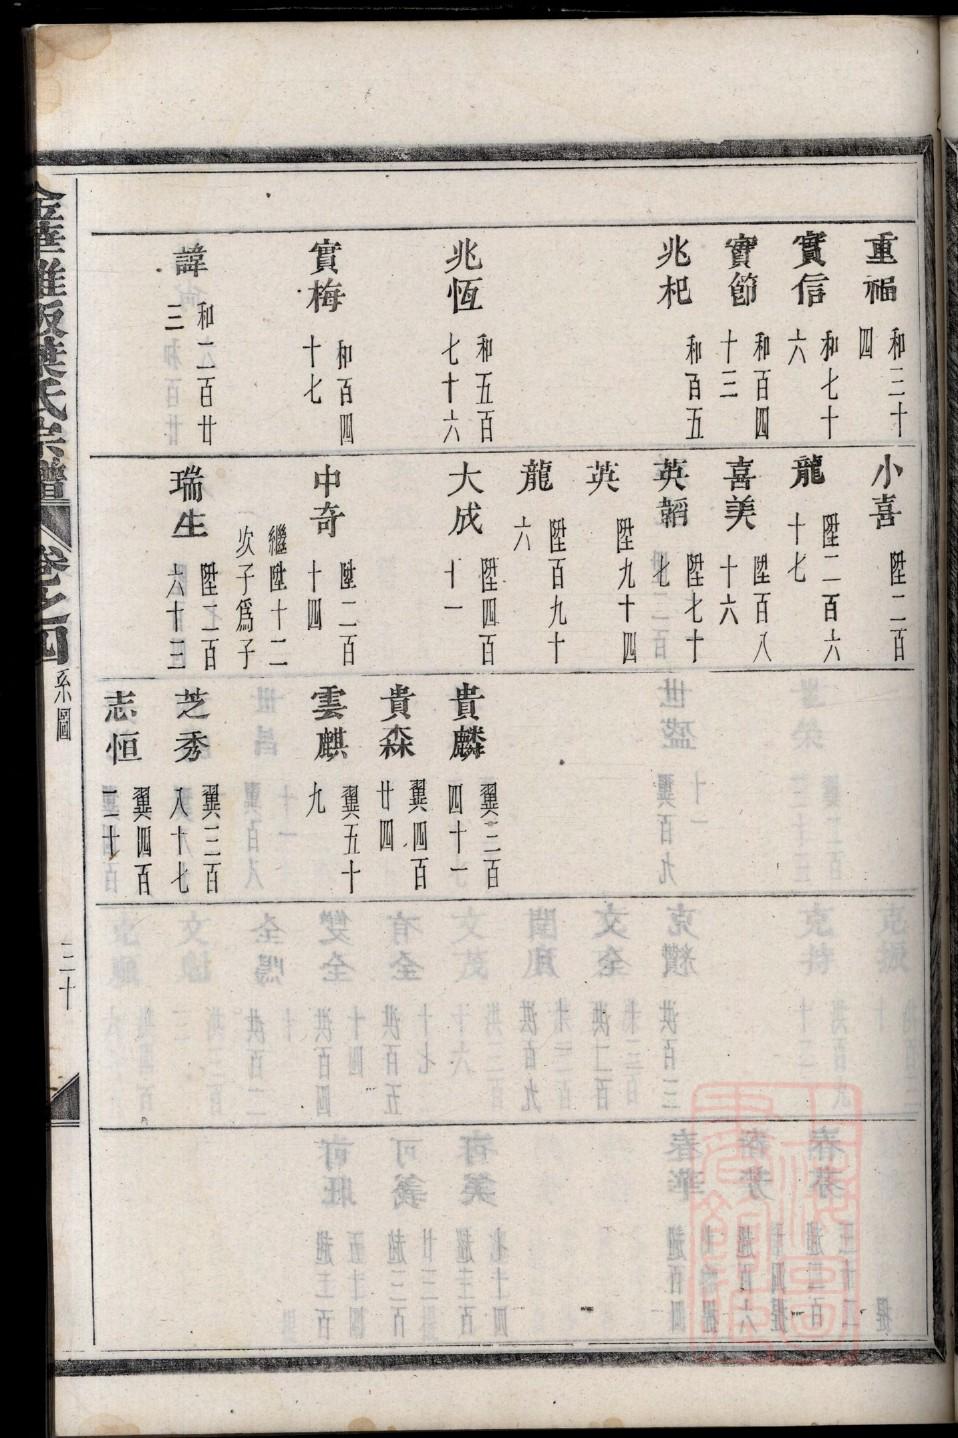 重福
和三十
四
實信
和七十
六
實節
和百四
十三
兆杞
和百五
兆恆
和五百
七十六
實梅
和百四
十七
諱
和二百廿
三
小喜
陞二百
龍
陞二百六
十七
喜美
陞百八
十六
英韜
陞七十
七
英
陞九十四
龍
陞百九十
六
大成
陞四百
十一
中奇
陞二百
十四
繼陞十二
次子爲子
瑞生
陞二百
六十三
貴麟
翼三百
四十一
貴森
翼四百
廿四
雲麒
翼五十
九
芝秀
翼三百
八十七
志恒
翼四百
二十
葉氏宗譜
卷之四
系圖
三十